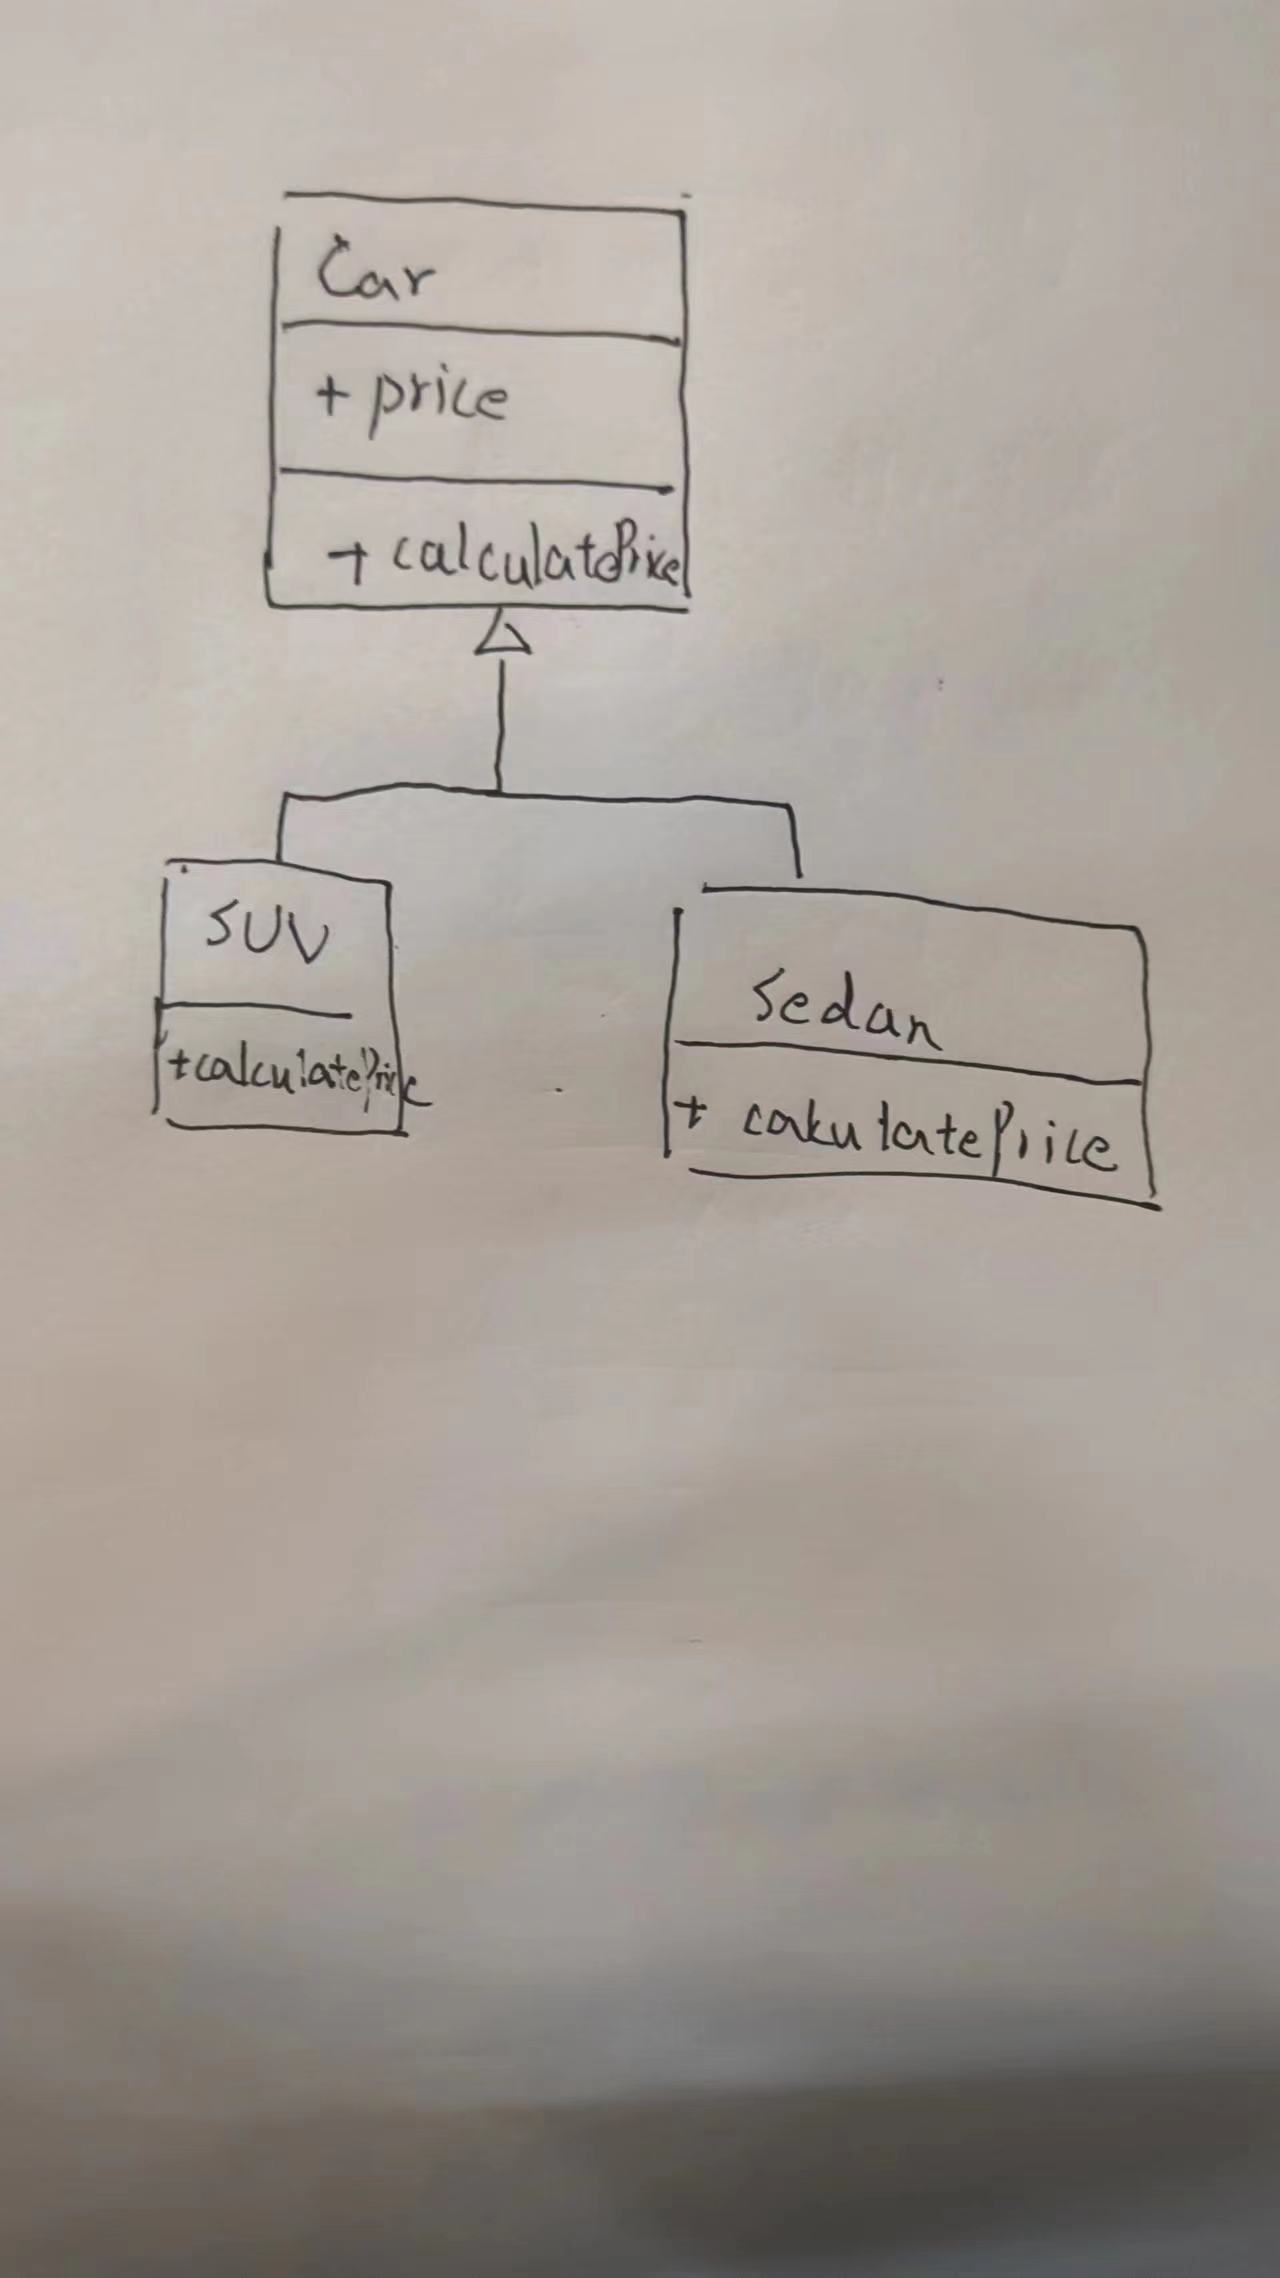 Car
+ price
+ calculatePrice
SUV
+calculatePrice
Sedan
+ calculatePrice